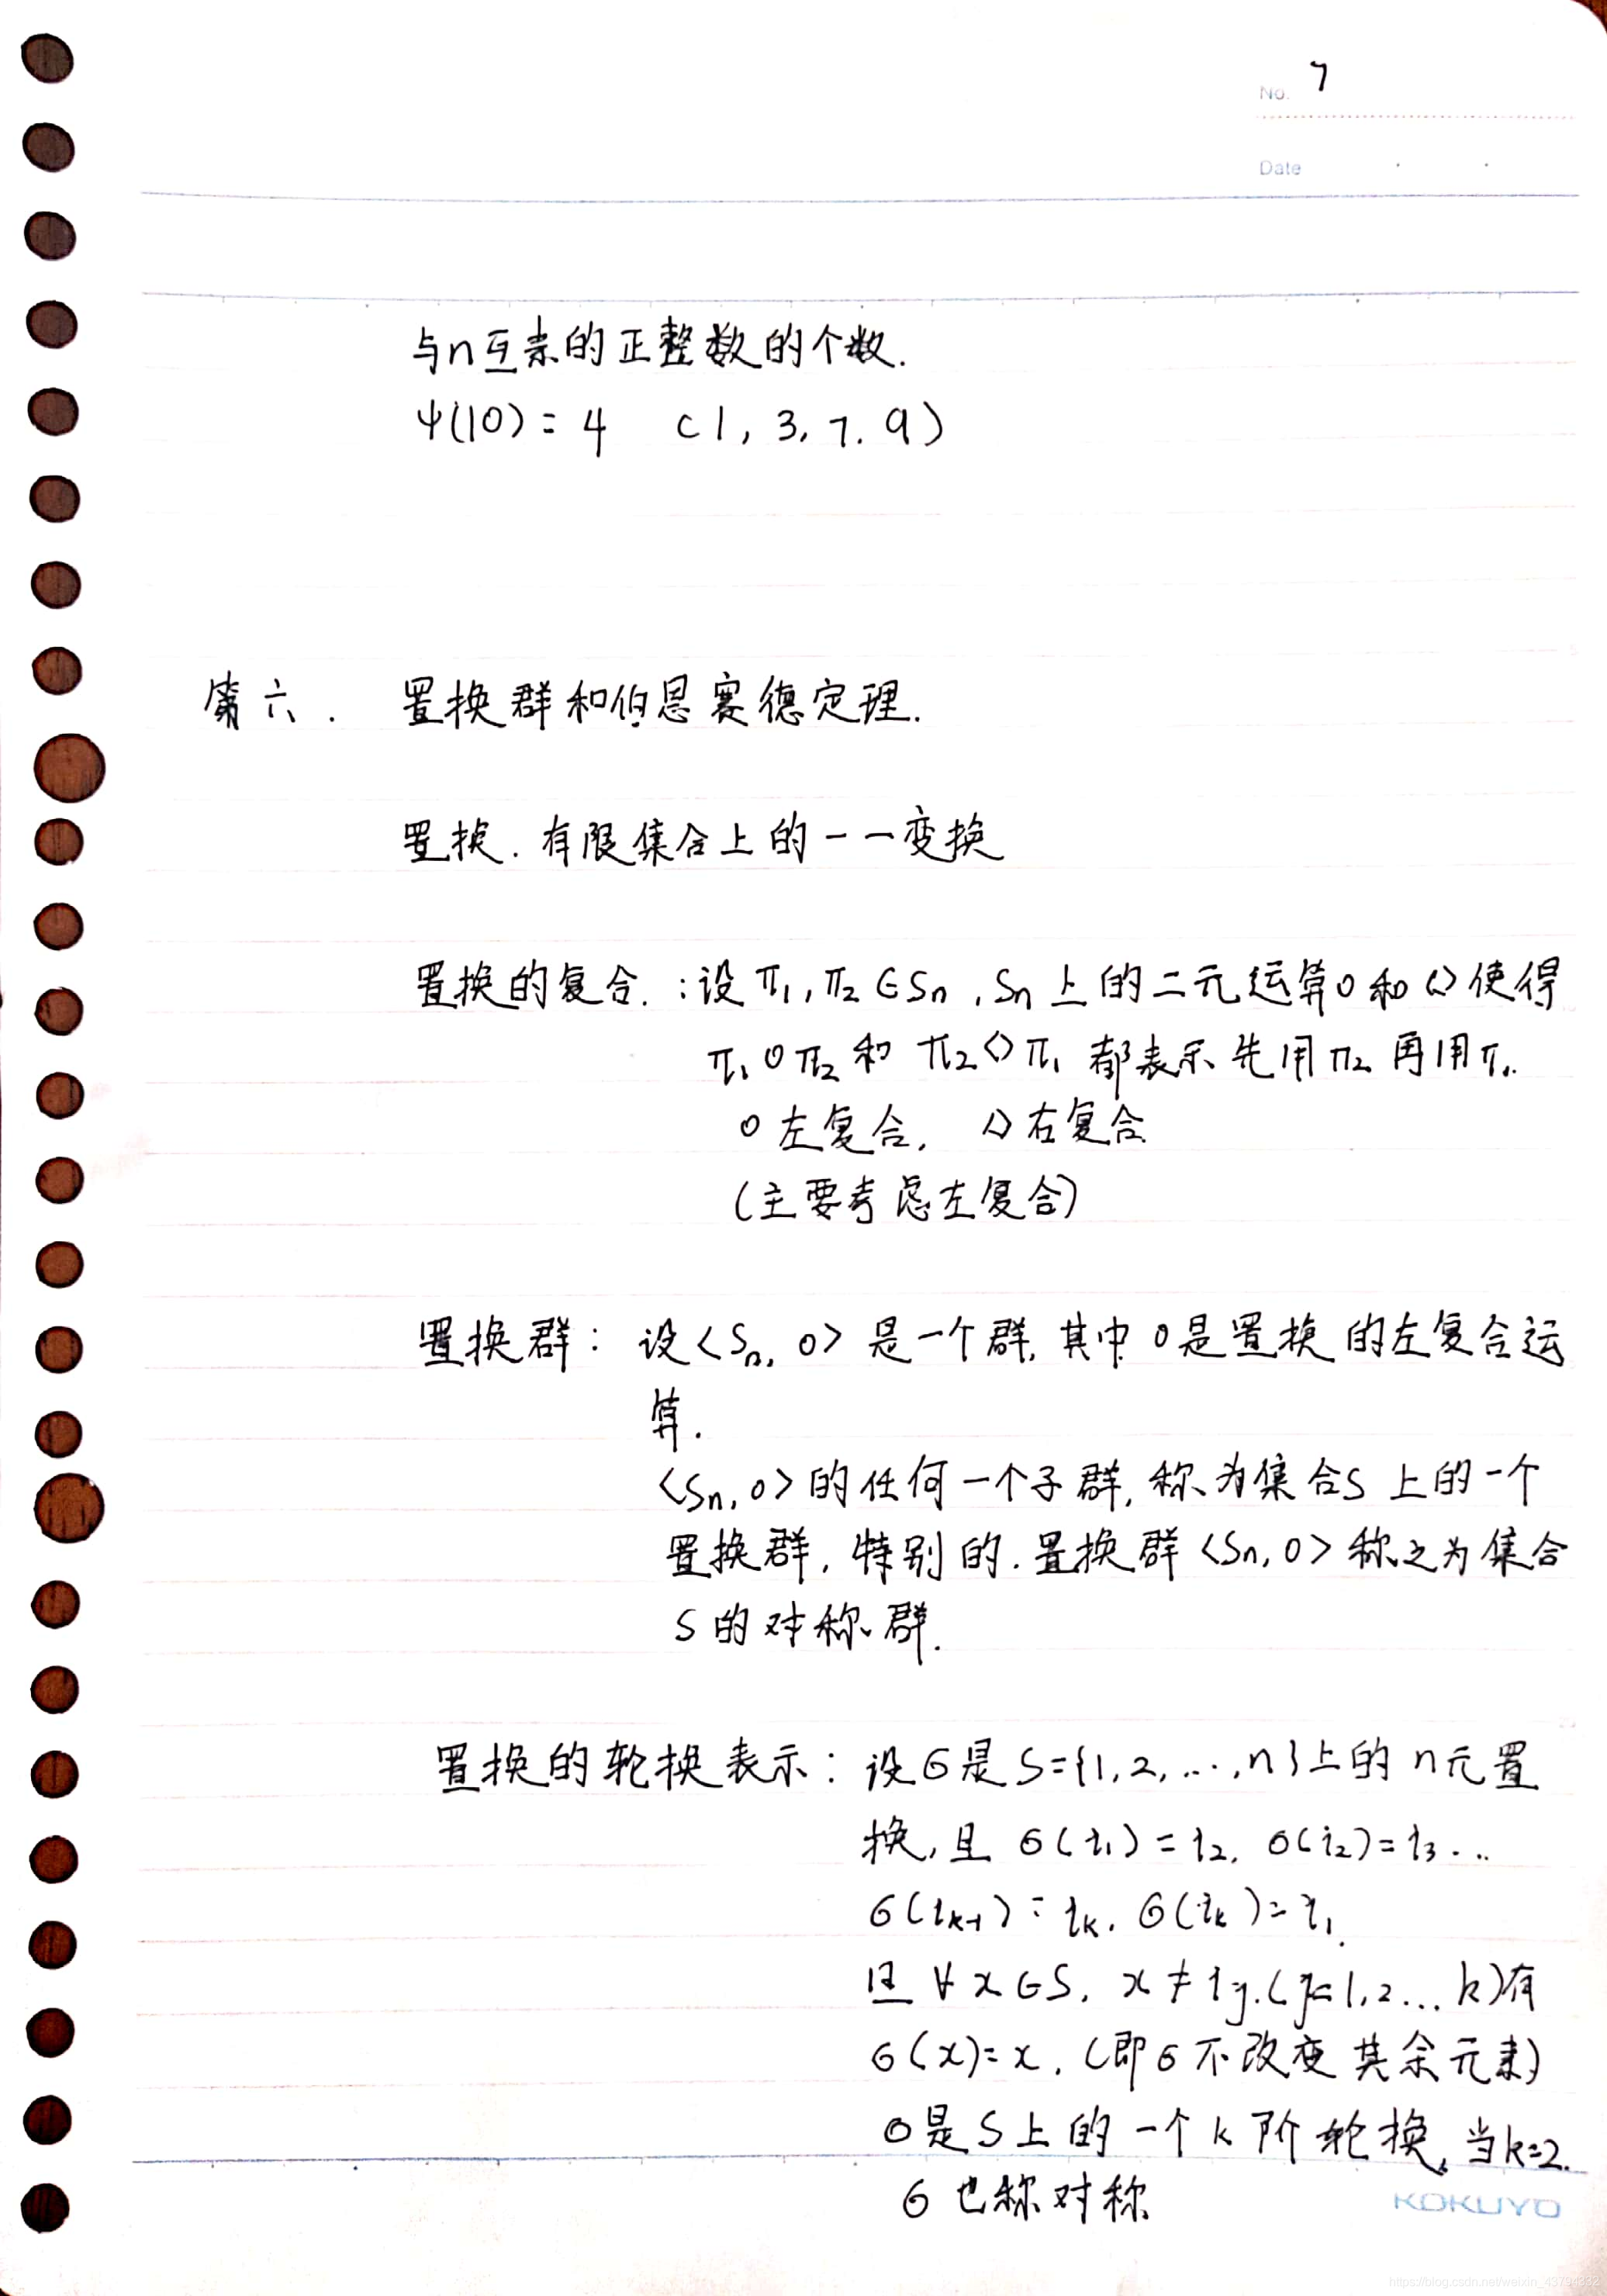 No. 7
Date
与n互素的正整数的个数.
ψ(10)=4 (1, 3, 7. 9)
第六. 置换群和伯恩赛德定理.
置换. 有限集合上的一一变换
置换的复合.:设π₁,π₂∈Sn,Sn上的二元运算○和◇使得
π₁○π₂和π₂◇π₁都表示先用π₂再用π₁.
○左复合, ◇右复合
(主要考虑左复合)
置换群: 设<Sn, ○>是一个群,其中○是置换的左复合运
算.
<Sn,○>的任何一个子群,称为集合S上的一个
置换群,特别的.置换群<Sn,○>称之为集合
S的对称群.
置换的轮换表示: 设σ是S={1,2,...,n}上的n元置
换,且 σ(i₁)=i₂, σ(i₂)=i₃...
σ(iₖ₋₁)=iₖ. σ(iₖ)=i₁.
且∀x∈S, x≠ij.(j=1,2...k)有
σ(x)=x.(即σ不改变其余元素)
σ是S上的一个k阶轮换,当k=2.
σ也称对称
KOKUYO
https://blog.csdn.net/weixin_43794332